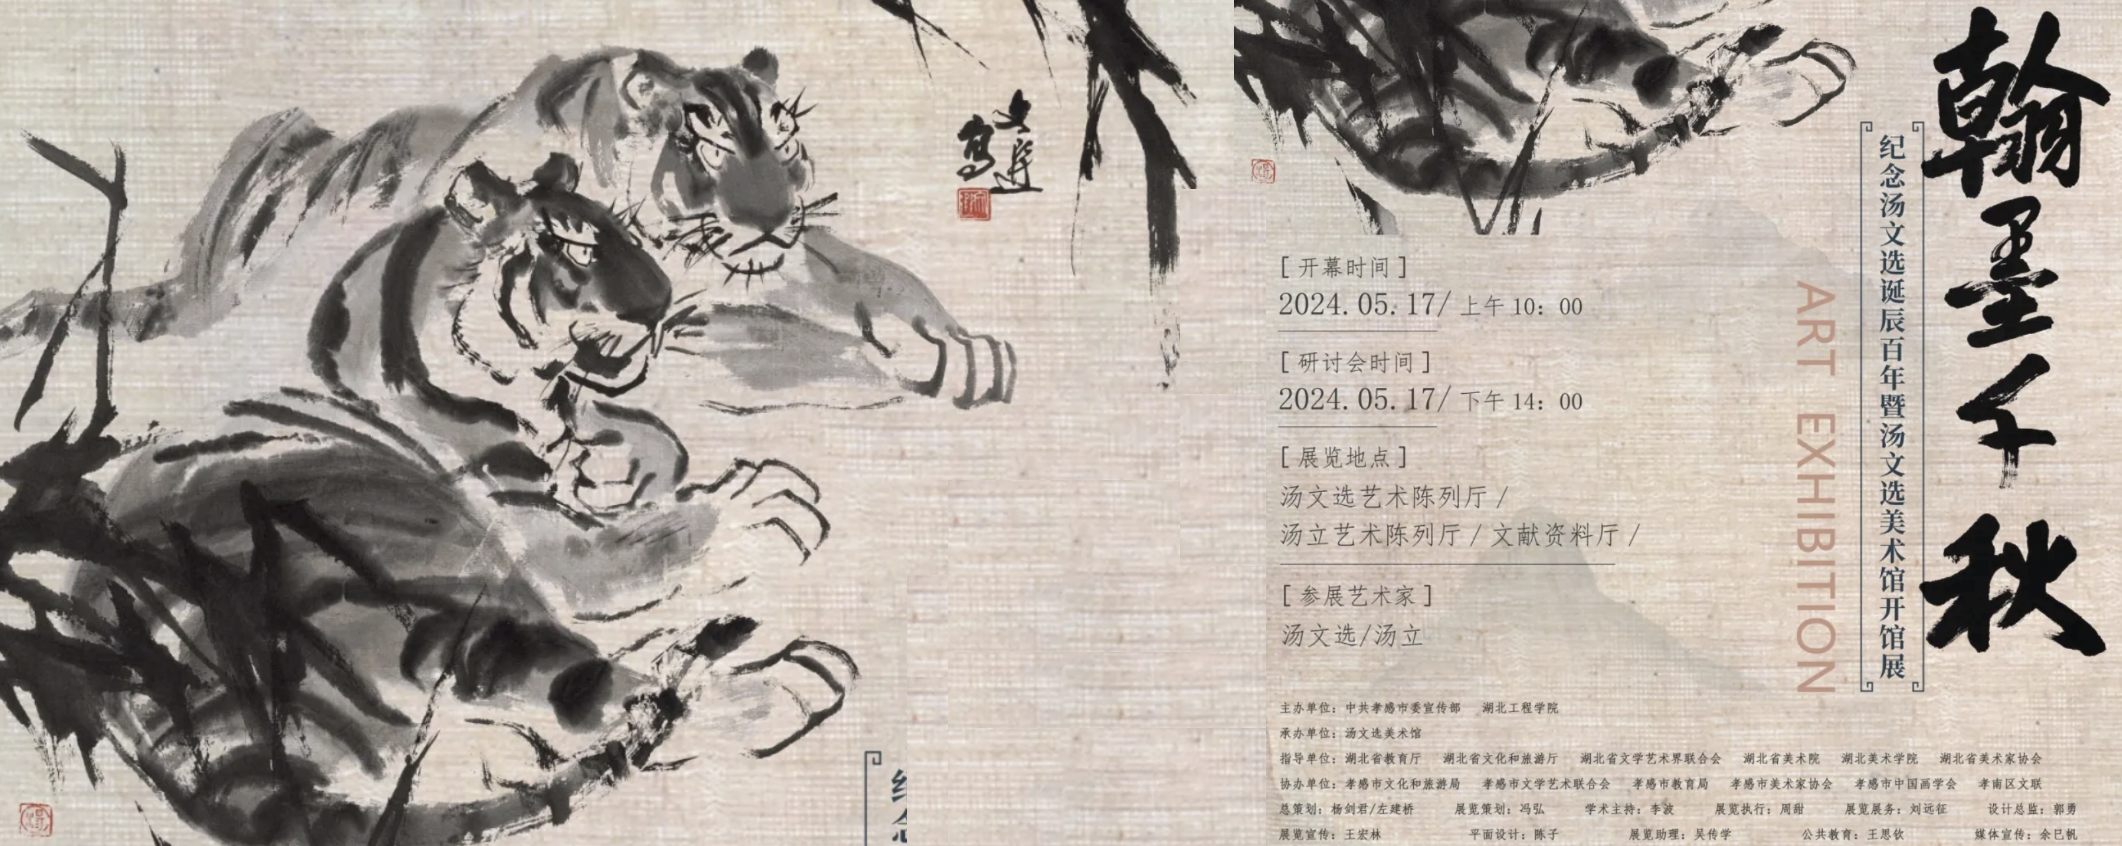 文選
寫
翰墨千秋
纪念汤文选诞辰百年暨汤文选美术馆开馆展
ART EXHIBITION
[ 开幕时间 ]
2024.05.17/ 上午 10：00
[ 研讨会时间 ]
2024.05.17/ 下午 14：00
[ 展览地点 ]
汤文选艺术陈列厅 /
汤立艺术陈列厅 / 文献资料厅 /
[ 参展艺术家 ]
汤文选/汤立
主办单位：中共孝感市委宣传部 湖北工程学院
承办单位：汤文选美术馆
指导单位：湖北省教育厅 湖北省文化和旅游厅 湖北省文学艺术界联合会 湖北省美术院 湖北美术学院 湖北省美术家协会
协办单位：孝感市文化和旅游局 孝感市文学艺术联合会 孝感市教育局 孝感市美术家协会 孝感市中国画学会 孝南区文联
总策划：杨剑君/左建桥 展览策划：冯弘 学术主持：李波 展览执行：周甜 展览展务：刘远征 设计总监：郭勇
展览宣传：王宏林 平面设计：陈子 展览助理：吴传学 公共教育：王思钦 媒体宣传：余巳帆